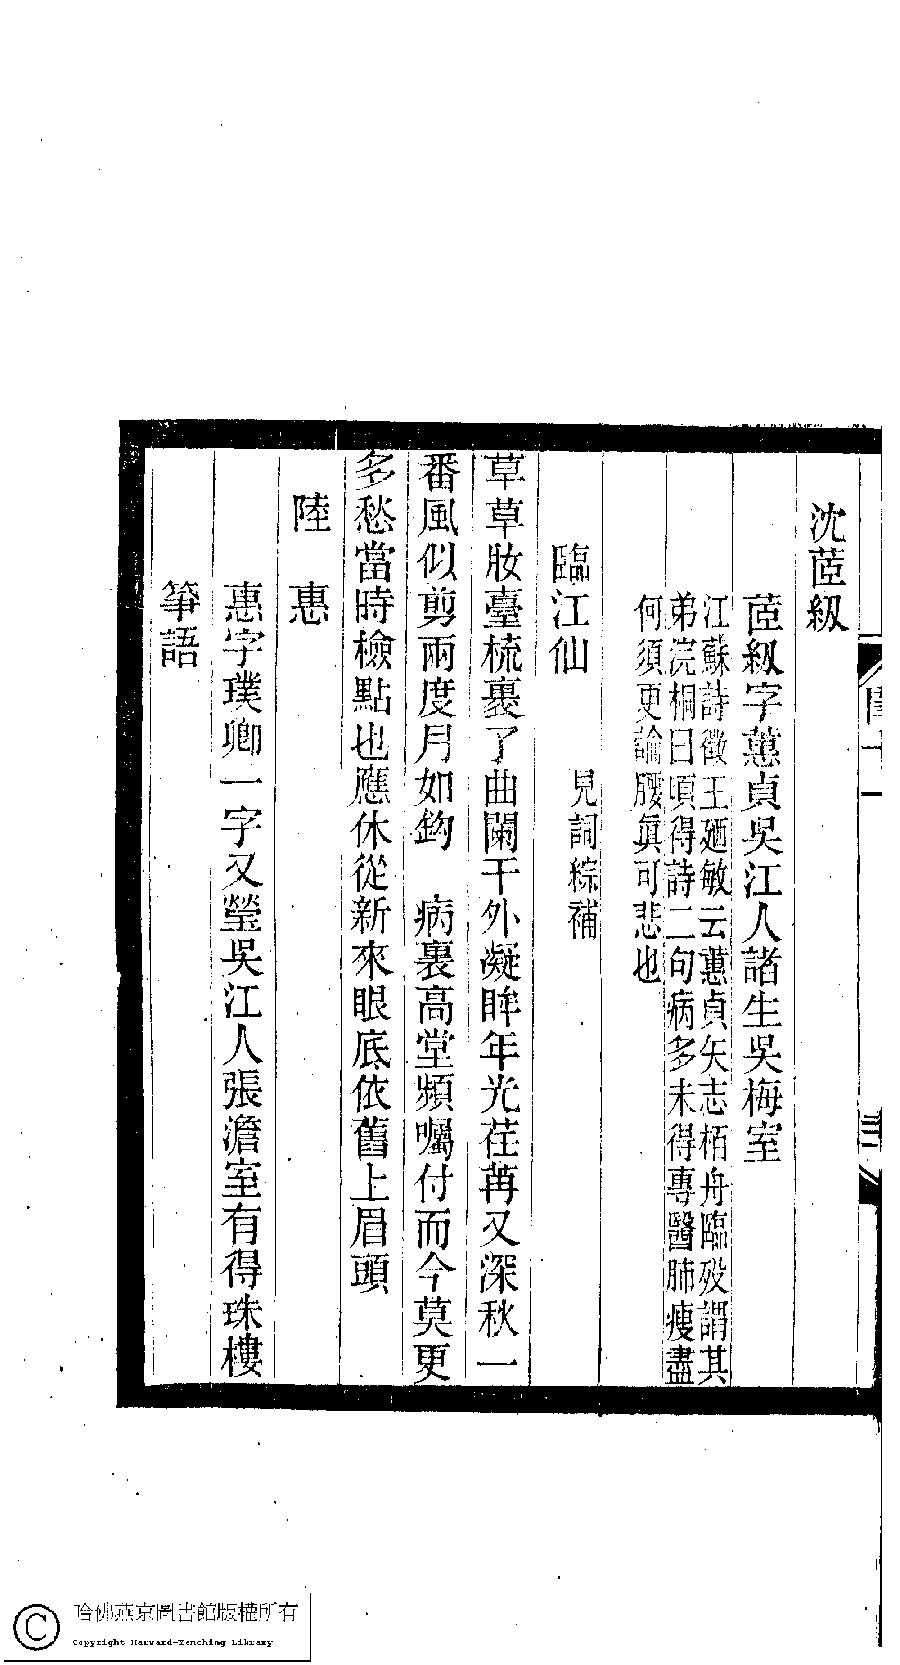 沈茝紉
茝紉字蕙貞吳江人諸生吳梅室
江蘇詩徵王廼敏云蕙貞矢志栢舟臨歿謂其
弟浣桐曰頃得詩二句病多未得專醫肺瘦盡
何須更論腰眞可悲也
臨江仙
見詞綜補
草草妝臺梳裹了曲闌干外凝眸年光荏苒又深秋一
番風似剪兩度月如鉤　病裏高堂頻囑付而今莫更
多愁當時檢點也應休從新來眼底依舊上眉頭
陸　惠
惠字璞卿一字又瑩吳江人張澹室有得珠樓
箏語
哈佛燕京圖書館版權所有
Copyright Harvard-Yenching Library